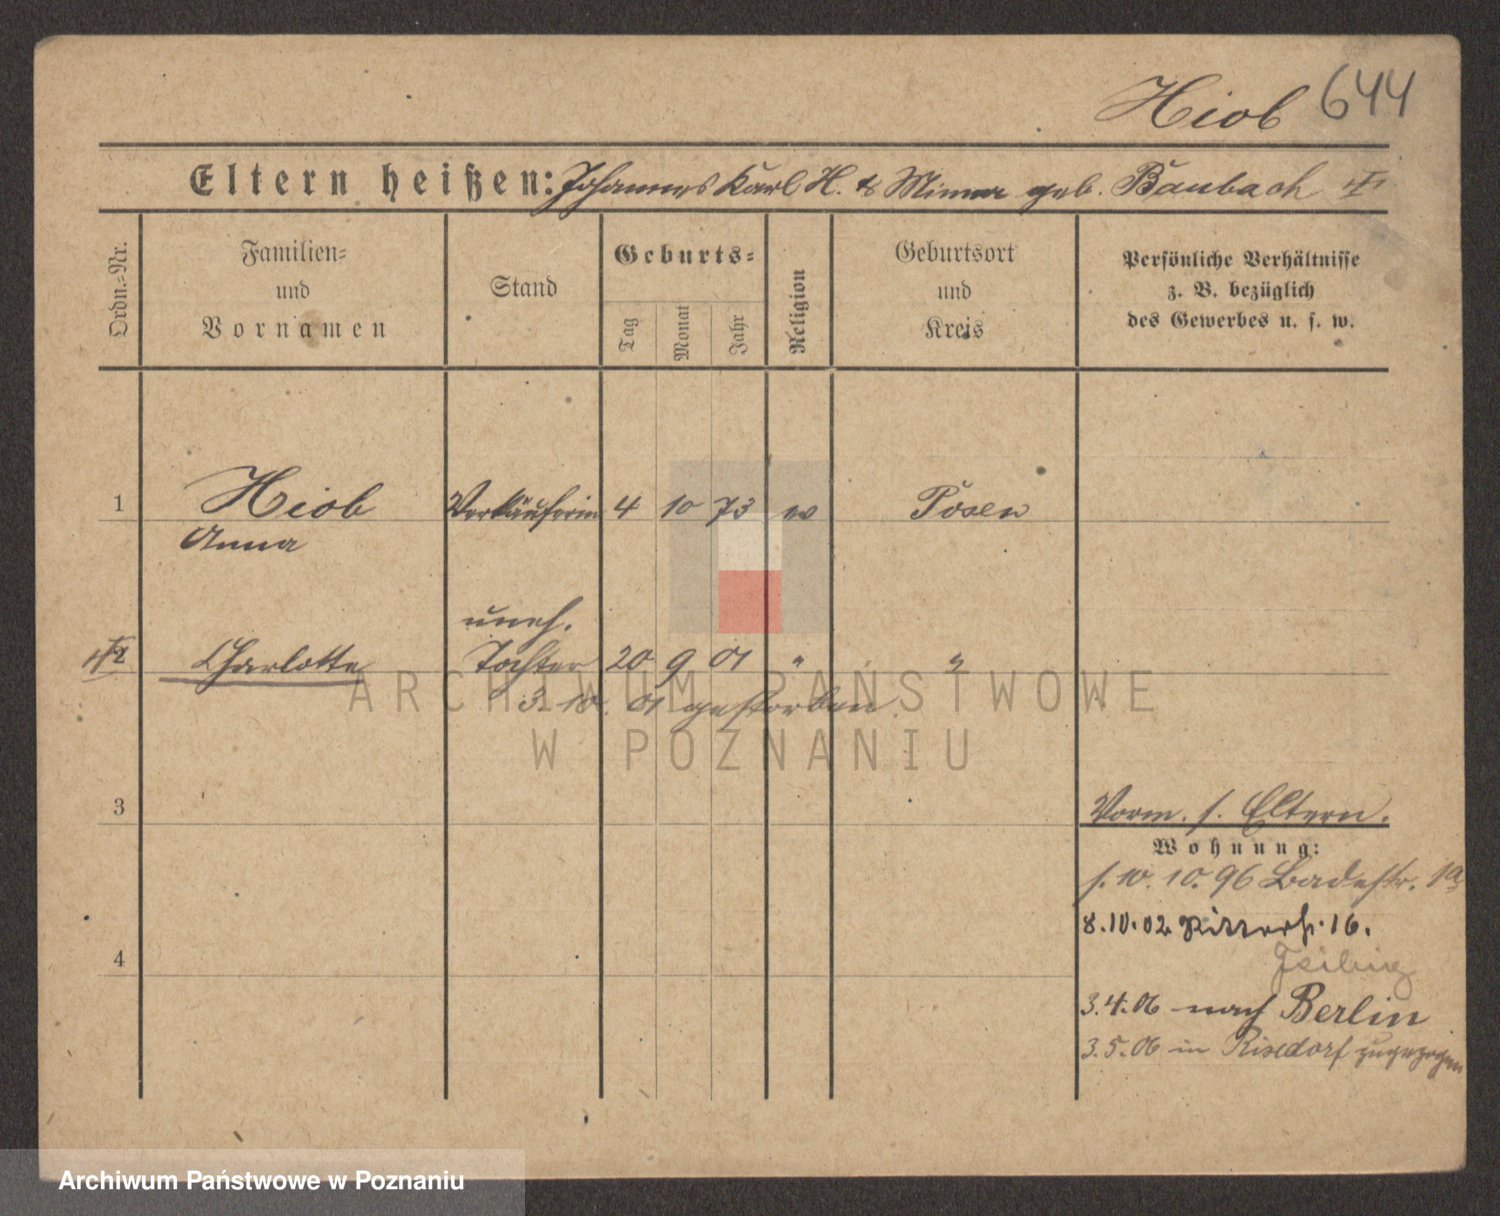 Hiob 644
Eltern heißen: Johannes Karl H. & Minna geb. Baubach
Ordn.-Nr.
Familien-
und
Vornamen
Stand
Geburts-
Tag
Monat
Jahr
Religion
Geburtsort
und
Kreis
Persönliche Verhältnisse
z. B. bezüglich
des Gewerbes u. s. w.
1 Hiob Verkäuferin 4 10 73 Posen
Anna
uneh.
2 Charlotte Tochter 20 9 01 " "
3. 10. 01 gestorben
ARCHIWUM PAŃSTWOWE
W POZNANIU
3
Vorm. s. Eltern.
Wohnung:
s. 10. 10. 96 Badestr.
8.10.02 Ritterstr. 16.
4
3.4.06 nach Berlin
3.5.06 in Rixdorf zugezogen
Archiwum Państwowe w Poznaniu